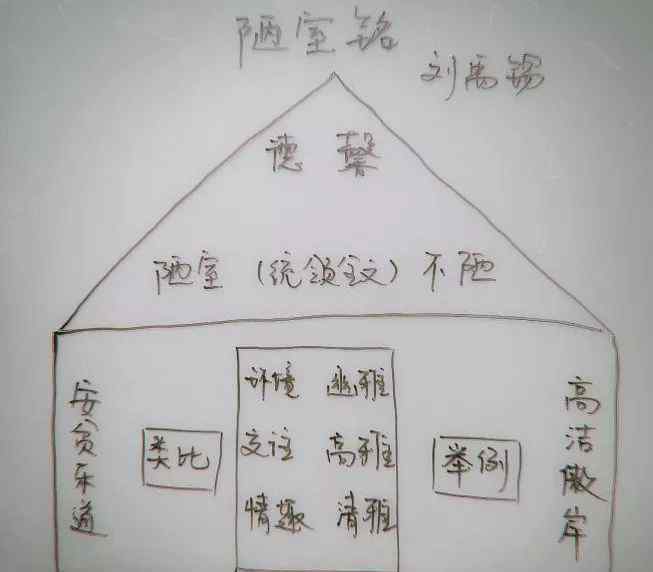 陋室铭
刘禹锡
德馨
陋室(统领全文)不陋
安贫乐道
类比
环境 幽雅
交往 高雅
情趣 清雅
举例
高洁傲岸